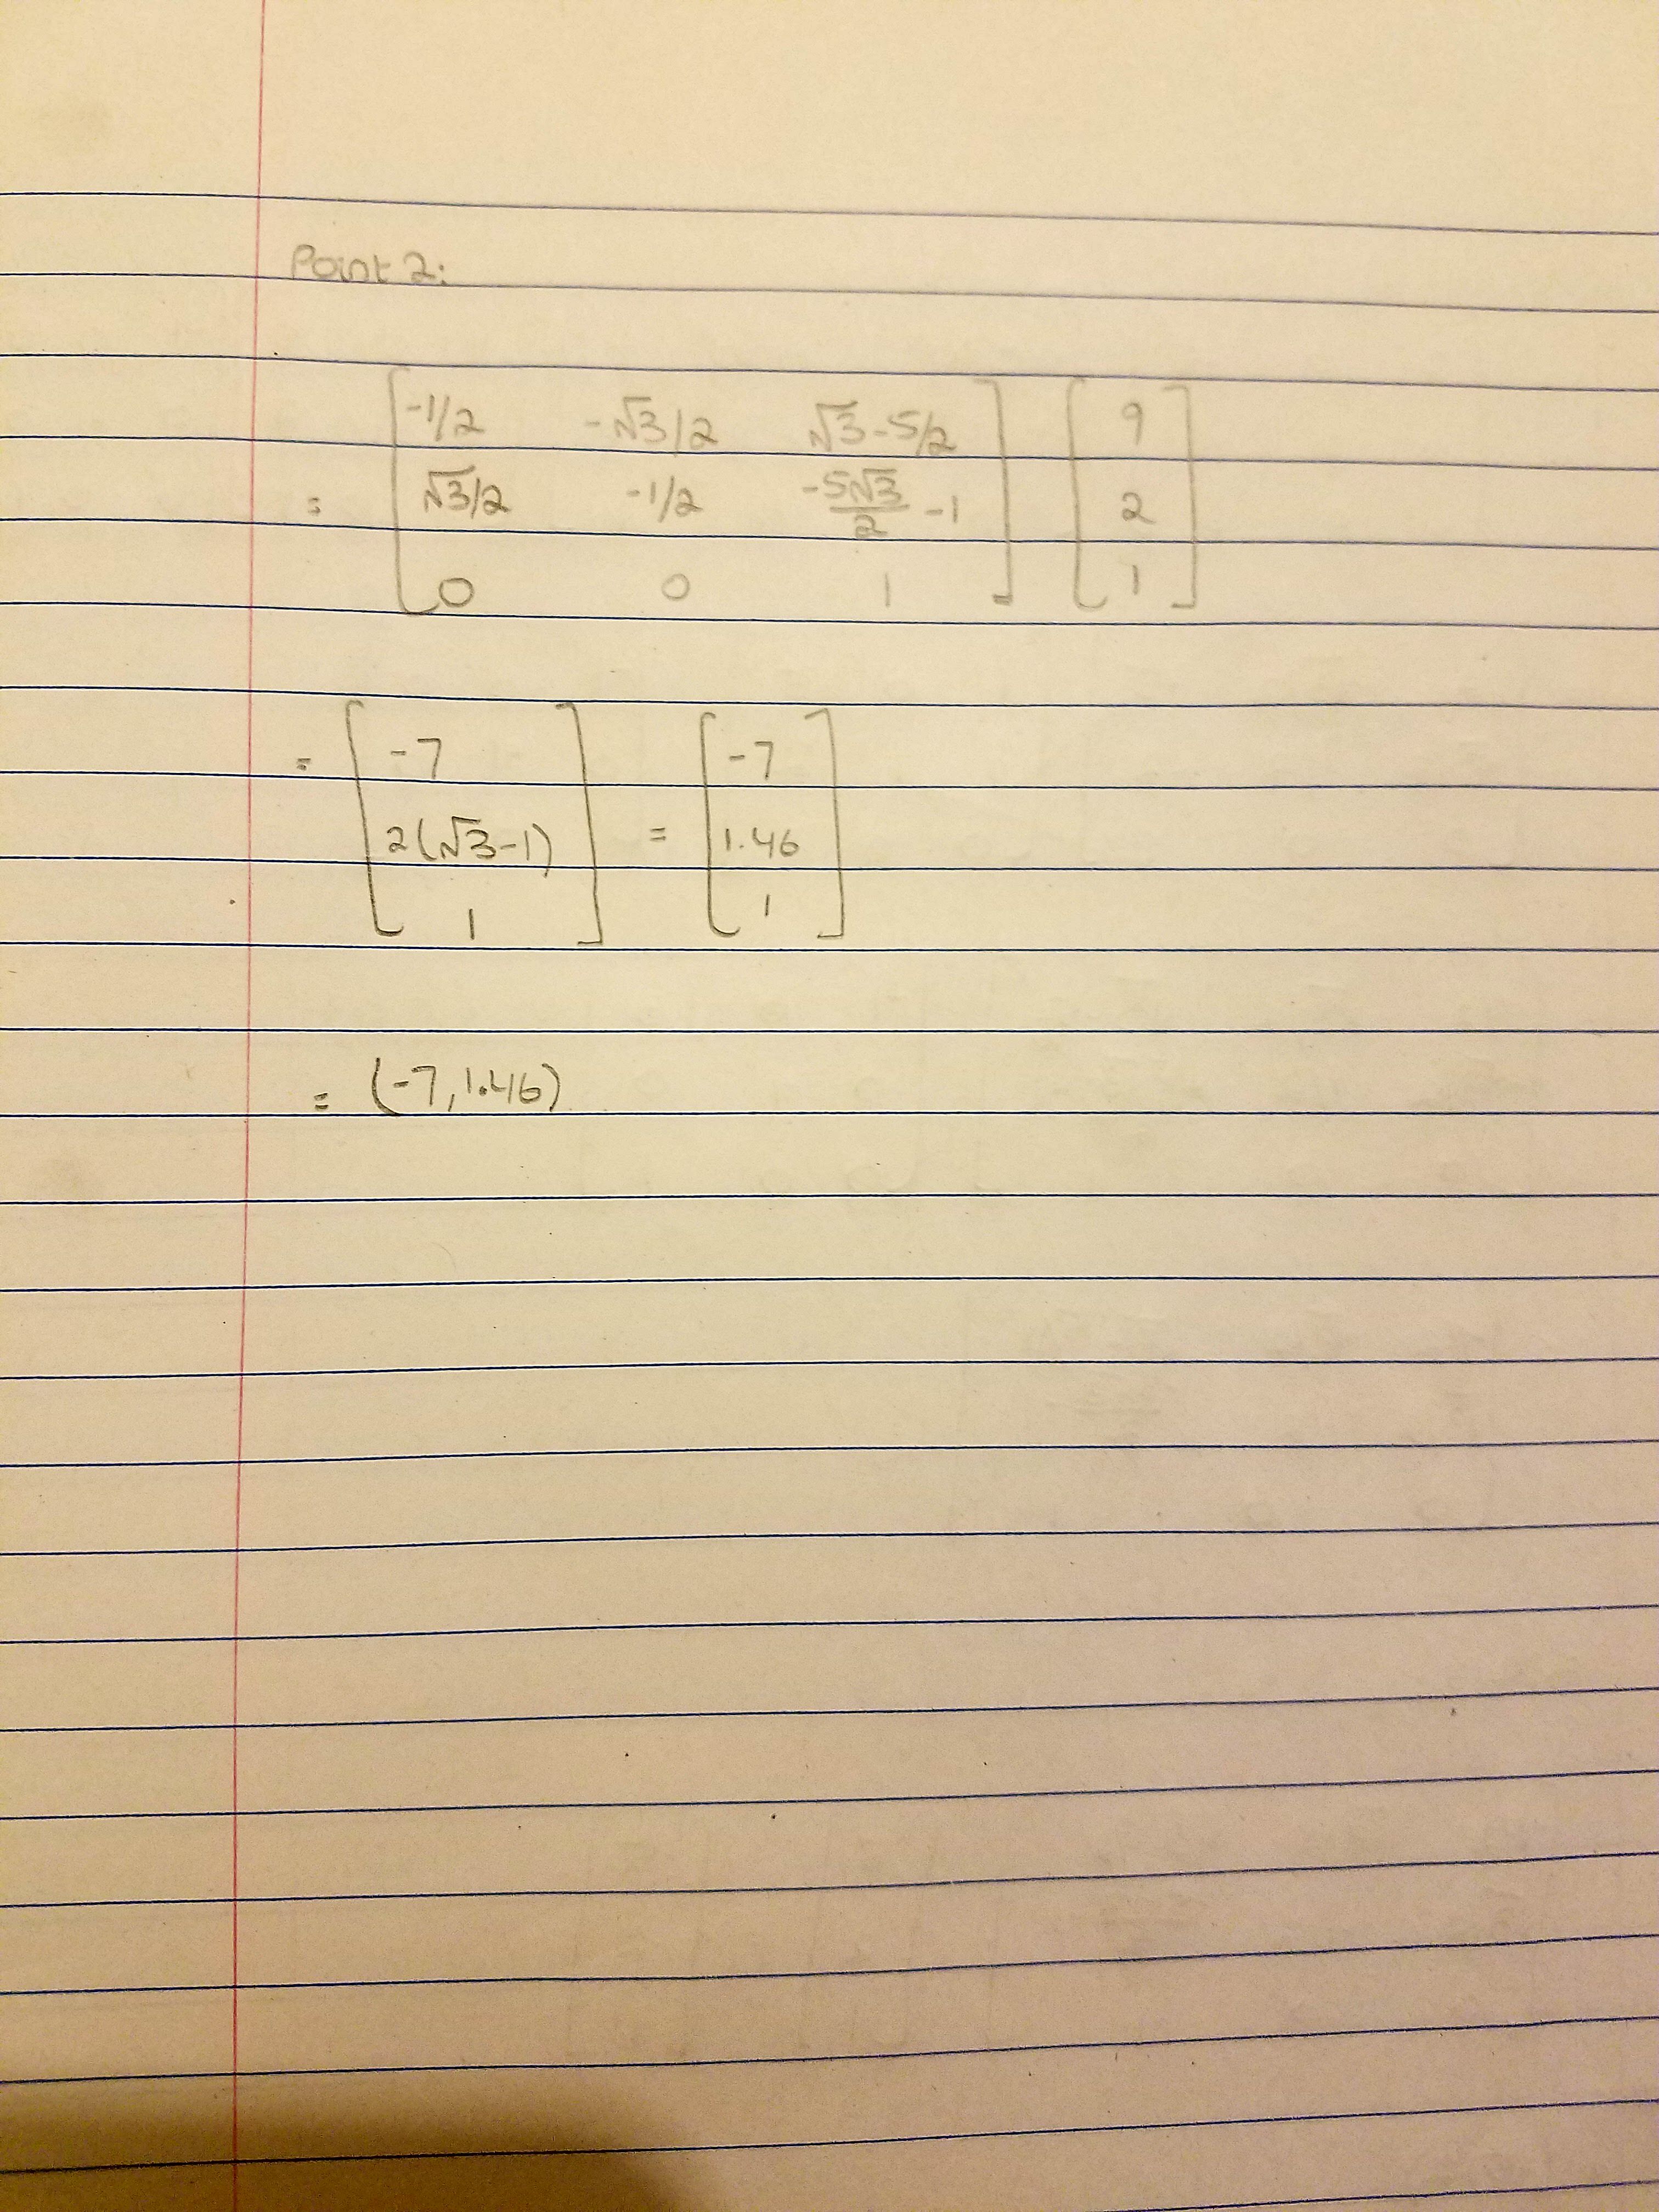 Point 2:
-1/2 -√3/2 √3-5/2 9
= √3/2 -1/2 -5√3/2 -1 2
0 0 1 1
-7 -7
= 2(√3-1) = 1.46
1 1
= (-7,1.46)